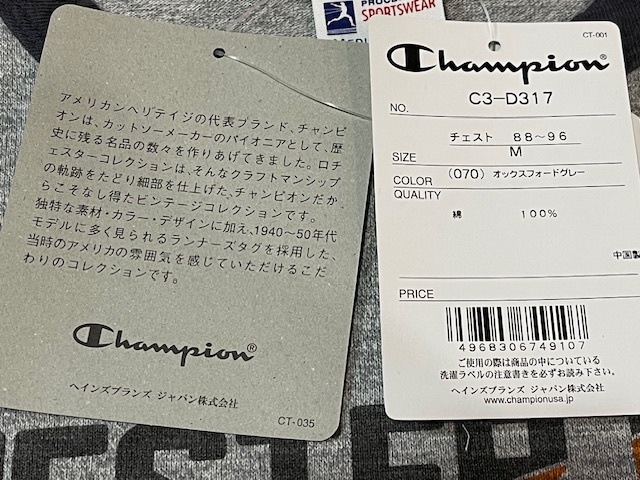 SPORTSWEAR
アメリカンヘリテイジの代表ブランド、チャンピ
オンは、カットソーメーカーのパイオニアとして、歴
史に残る名品の数々を作りあげてきました。ロチ
ェスターコレクションは、そんなクラフトマンシップ
の軌跡をたどり細部を仕上げた、チャンピオンだか
らこそなし得たビンテージコレクションです。
独特な素材・カラー・デザインに加え、1940〜50年代
モデルに多く見られるランナーズタグを採用した、
当時のアメリカの雰囲気を感じていただけるこだ
わりのコレクションです。
Champion®
ヘインズブランズ ジャパン株式会社
CT-035
CT-001
Champion®
NO. C3-D317
チェスト 88〜96
SIZE M
COLOR (070) オックスフォードグレー
QUALITY
綿 100%
中国製
PRICE
4968306749107
ご使用の際は商品の中についている
洗濯ラベルの注意書きを必ずお読み下さい。
ヘインズブランズ ジャパン株式会社
www.championusa.jp